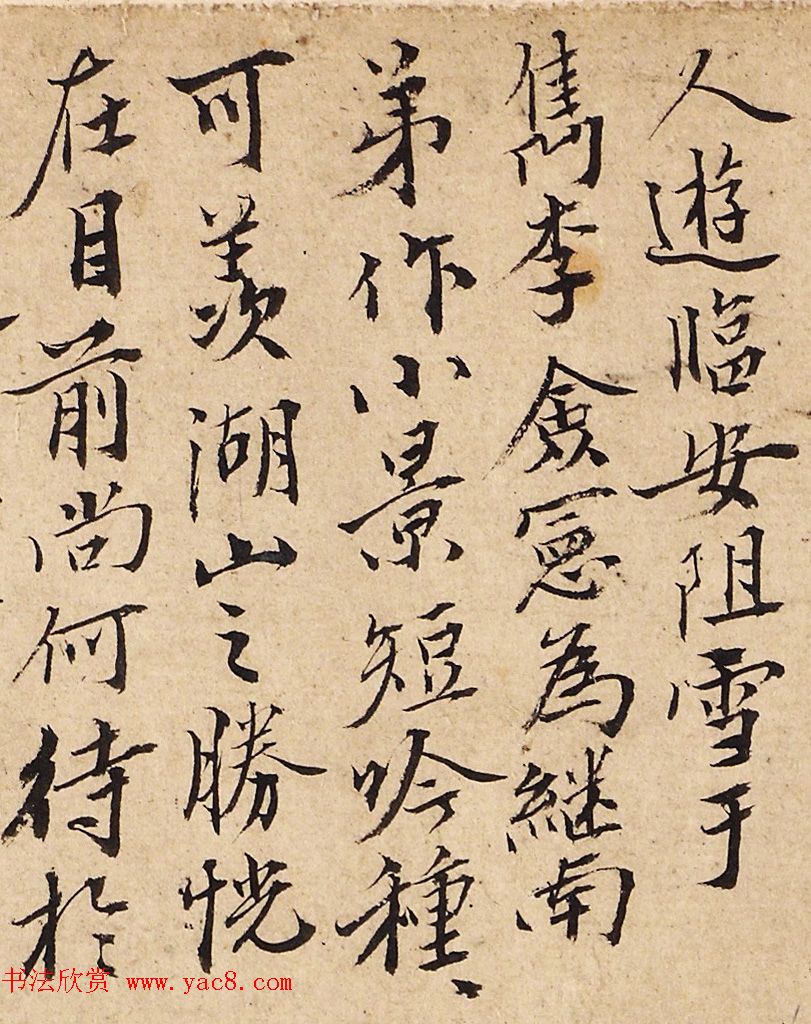 人遊臨安阻雪于
雋李僉憲為継南
弟作小景短吟種々
可羨湖山之勝恍
在目前尚何待於
书法欣赏 www.yac8.com